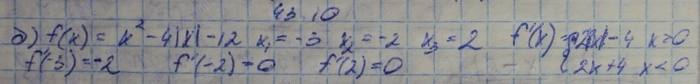 43.10
б) f(x) = x² - 4|x| - 12 x₁ = -3 x₂ = -2 x₃ = 2 f'(x) = { 2x - 4 x>0
f'(-3) = -2 f'(-2) = 0 f'(2) = 0 { 2x+4 x<0